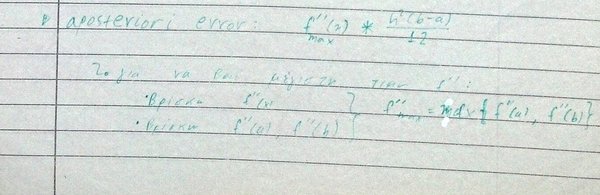 aposteriori error: f''max(z) * h²(b-a)/12
για να βρω μέγιστη τιμή f'':
• Βρίσκω f''(x) } f''max = max{f''(a), f''(b)}
• Βρίσκω f''(a), f''(b)